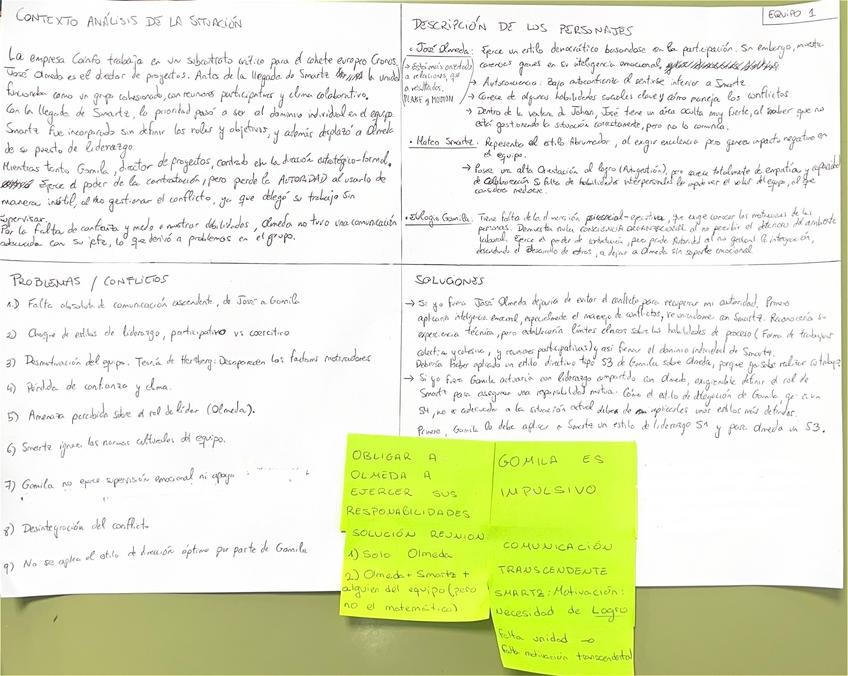 CONTEXTO ANÁLISIS DE LA SITUACIÓN
La empresa Coinfo trabaja en un subcontrato crítico para el cohete europeo Cronos.
José Olmedo es el director de proyectos. Antes de la llegada de Smartz la unidad
funcionaba como un grupo cohesionado, con reuniones participativas y clima colaborativo.
Con la llegada de Smartz, la prioridad pasó a ser el dominio individual en el equipo.
Smartz fue incorporado sin definir los roles y objetivos, y además desplazó a Olmeda
de su puesto de liderazgo.
Mientras tanto Gomila, director de proyectos, centrado en la dirección estratégico-formal.
Ejerce el poder de la contratación, pero pierde la AUTORIDAD al usarlo de
manera inútil, al no gestionar el conflicto, ya que delegó su trabajo sin
supervisar.
Por la falta de confianza y miedo a mostrar debilidades, Olmeda no tuvo una comunicación
adecuada con su jefe, lo que derivó a problemas en el grupo.
EQUIPO 1
DESCRIPCIÓN DE LOS PERSONAJES
• José Olmeda: Ejerce un estilo democrático basandose en la participación. Sin embargo, muestra
carencias graves en su inteligencia emocional.
→ Está más orientado a relaciones, que a resultados. BLAKE y MOUTON
→ Autoconciencia: Baja autoconfianza al sentirse inferior a Smartz
→ Carece de algunas habilidades sociales clave y cómo maneja los conflictos.
→ Dentro de la ventana de Johari, José tiene un área oculta muy fuerte, al saber que no
está gestionando la situación correctamente, pero no lo comunica.
• Mateo Smartz: Representa el estilo Abrumador, al exigir excelencia pero genera impacto negativo en
el equipo.
→ Posee una alta Orientación al logro (Autogestión), pero carece totalmente de empatía y capacidad
de colaboración. Su falta de habilidades interpersonales le impide ver el valor del equipo, al que
considera mediocre.
Gomila: Tiene falta de la dimensión psicosocial-ejecutiva, que exige conocer las motivaciones de las
personas. Demuestra nula CONSCIENCIA ORGANIZACIONAL al no percibir el deterioro del ambiente
laboral. Ejerce el poder de contratación, pero pierde Autoridad al no gestionar la integración,
descuidando el desarrollo de otros, a dejar a Olmeda sin soporte emocional
PROBLEMAS / CONFLICTOS
1.) Falta absoluta de comunicación ascendente, de José a Gomila
2) Choque de estilos de liderazgo, participativo vs coercitivo
3) Desmotivación del equipo. Teoría de Herzberg: Desaparecen los factores motivadores
4) Pérdida de confianza y clima.
5) Amenaza percibida sobre el rol de líder (Olmeda).
6) Smartz ignora las normas culturales del equipo.
7) Gomila no ejerce supervisión emocional ni apoyo
8) Desintegración del conflicto
9) No se aplica el estilo de dirección óptimo por parte de Gomila
SOLUCIONES
→ Si yo fuera José Olmeda dejaría de evitar el conflicto para recuperar mi autoridad. Primero
aplicaría inteligencia emocional, especialmente el manejo de conflictos, reuniendome con Smartz. Reconocería su
experiencia técnica, pero establecería límites claros sobre las habilidades de proceso (Forma de trabajar
colectiva y cohesiva, y reuniones participativas) y así frenar el dominio individual de Smartz.
Debería haber aplicado un estilo directivo tipo S3 de Gomila sobre Olmeda, porque ya sabe realizar su trabajo
→ Si yo fuera Gomila actuaría con liderazgo compartido con Olmeda, exigiendole definir el rol de
Smartz para asegurar una responsabilidad mutua. Cómo el estilo de delegación de Gomila, que es un
S4, no es adecuado a la situación actual debería de aplicarles unos estilos más definidos.
Primero, Gomila debe aplicar a Smartz un estilo de liderazgo S1 y para Olmeda un S3.
OBLIGAR A
OLMEDA A
EJERCER SUS
RESPONABILIDADES
SOLUCIÓN REUNION
1) Solo Olmeda
2) Olmeda + Smartz +
alguien del equipo (pero
no el matemático)
GOMILA ES
IMPULSIVO
COMUNICACIÓN
TRANSCENDENTE
SMARTZ: Motivación:
Necesidad de Logro
Falta unidad →
Falta motivación transcendental